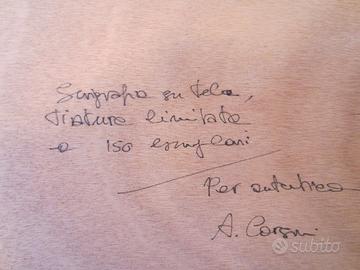 Serigrafia su tela,
tiratura limitata
a 150 esemplari
Per autentica
A. Corsini
subito